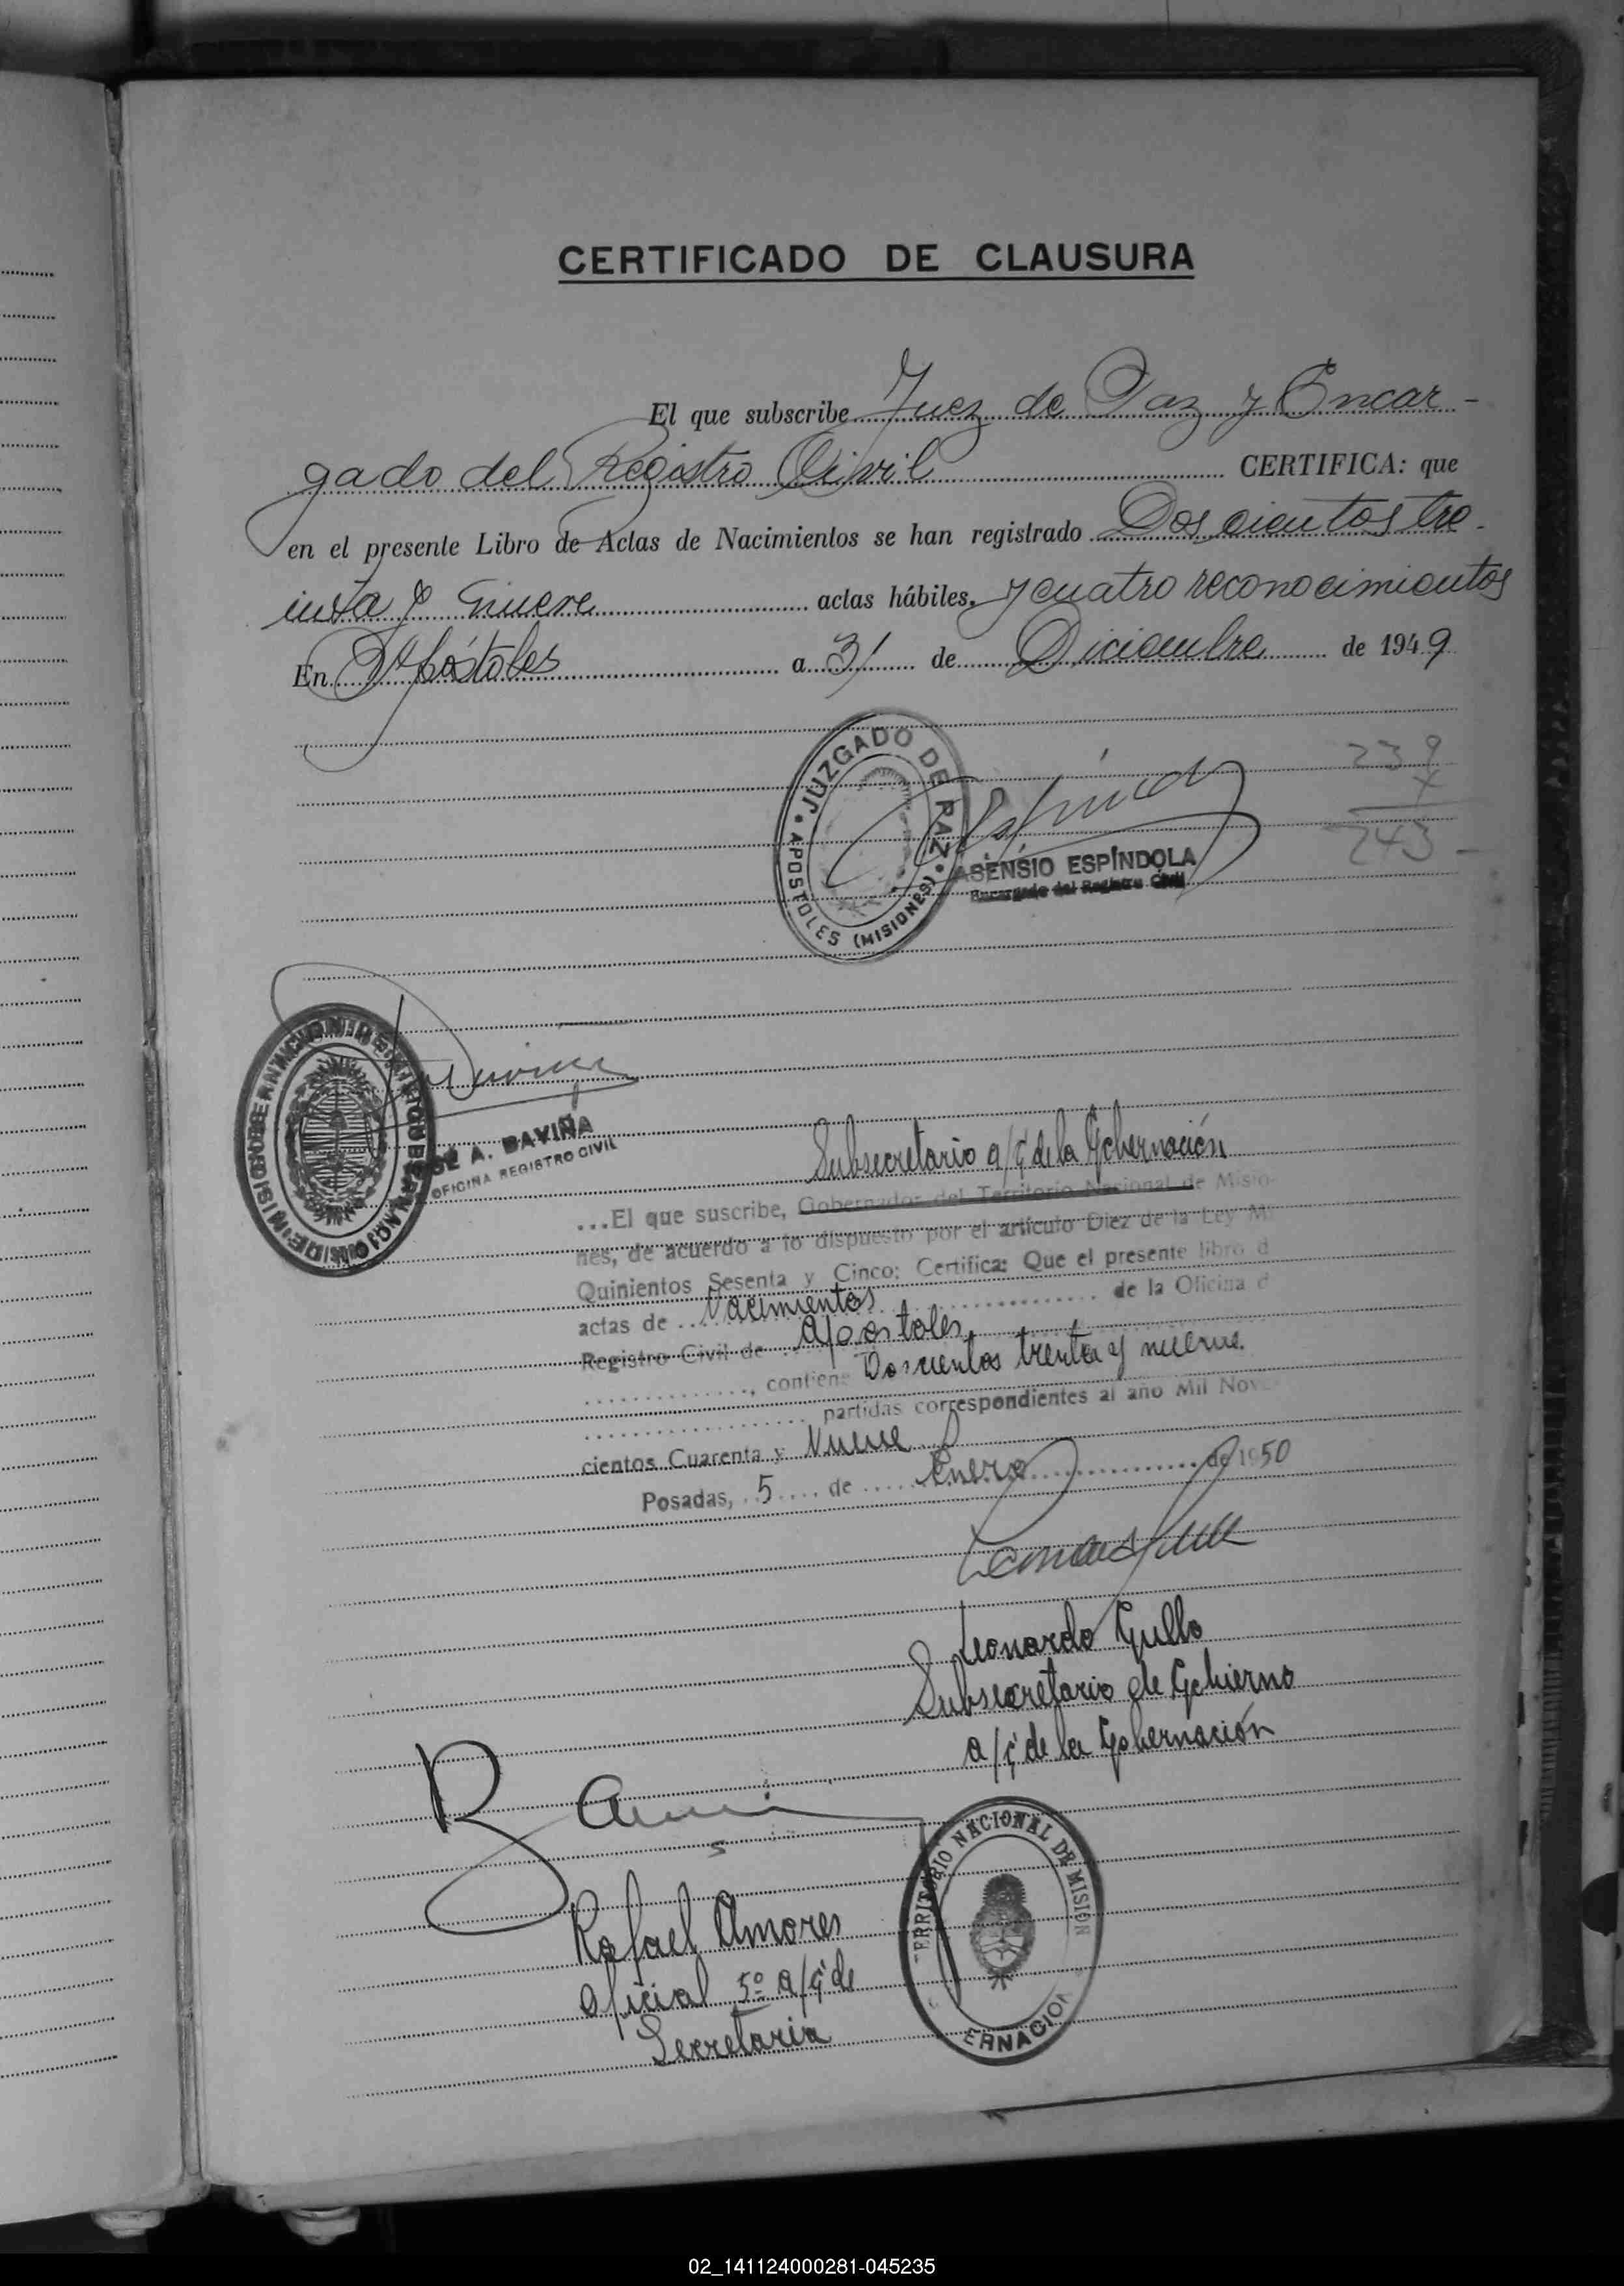 CERTIFICADO DE CLAUSURA
El que subscribe Juez de Paz y Encar-
gado del Registro Civil CERTIFICA: que
en el presente Libro de Actas de Nacimientos se han registrado Dos cientos tre-
inta y nueve actas hábiles, y cuatro reconocimientos
En Apóstoles a 31 de Diciembre de 1949
239
4
243
JUZGADO DE PAZ
APOSTOLES (MISIONES)
ASENSIO ESPÍNDOLA
Encargado del Registro Civil
A. DAVIÑA
OFICINA REGISTRO CIVIL
Subsecretario a/c de la Gobernación
...El que suscribe, Gobernador del Territorio Nacional de Misio-
nes, de acuerdo a lo dispuesto por el artículo Diez de la Ley M
Quinientos Sesenta y Cinco; Certifica: Que el presente libro d
actas de Nacimientos de la Oficina d
Registro Civil de Apóstoles
, contiene Doscientos treinta y nueve.
partidas correspondientes al año Mil Nove
cientos Cuarenta y Nueve
Posadas, 5 de Enero de 1950
Leonardo Gullo
Subsecretario de Gobierno
a/c de la Gobernación
TERRITORIO NACIONAL DE MISION
ERNACION
Rafael Amores
Oficial 5º a/c de
Secretaria
02_141124000281-045235